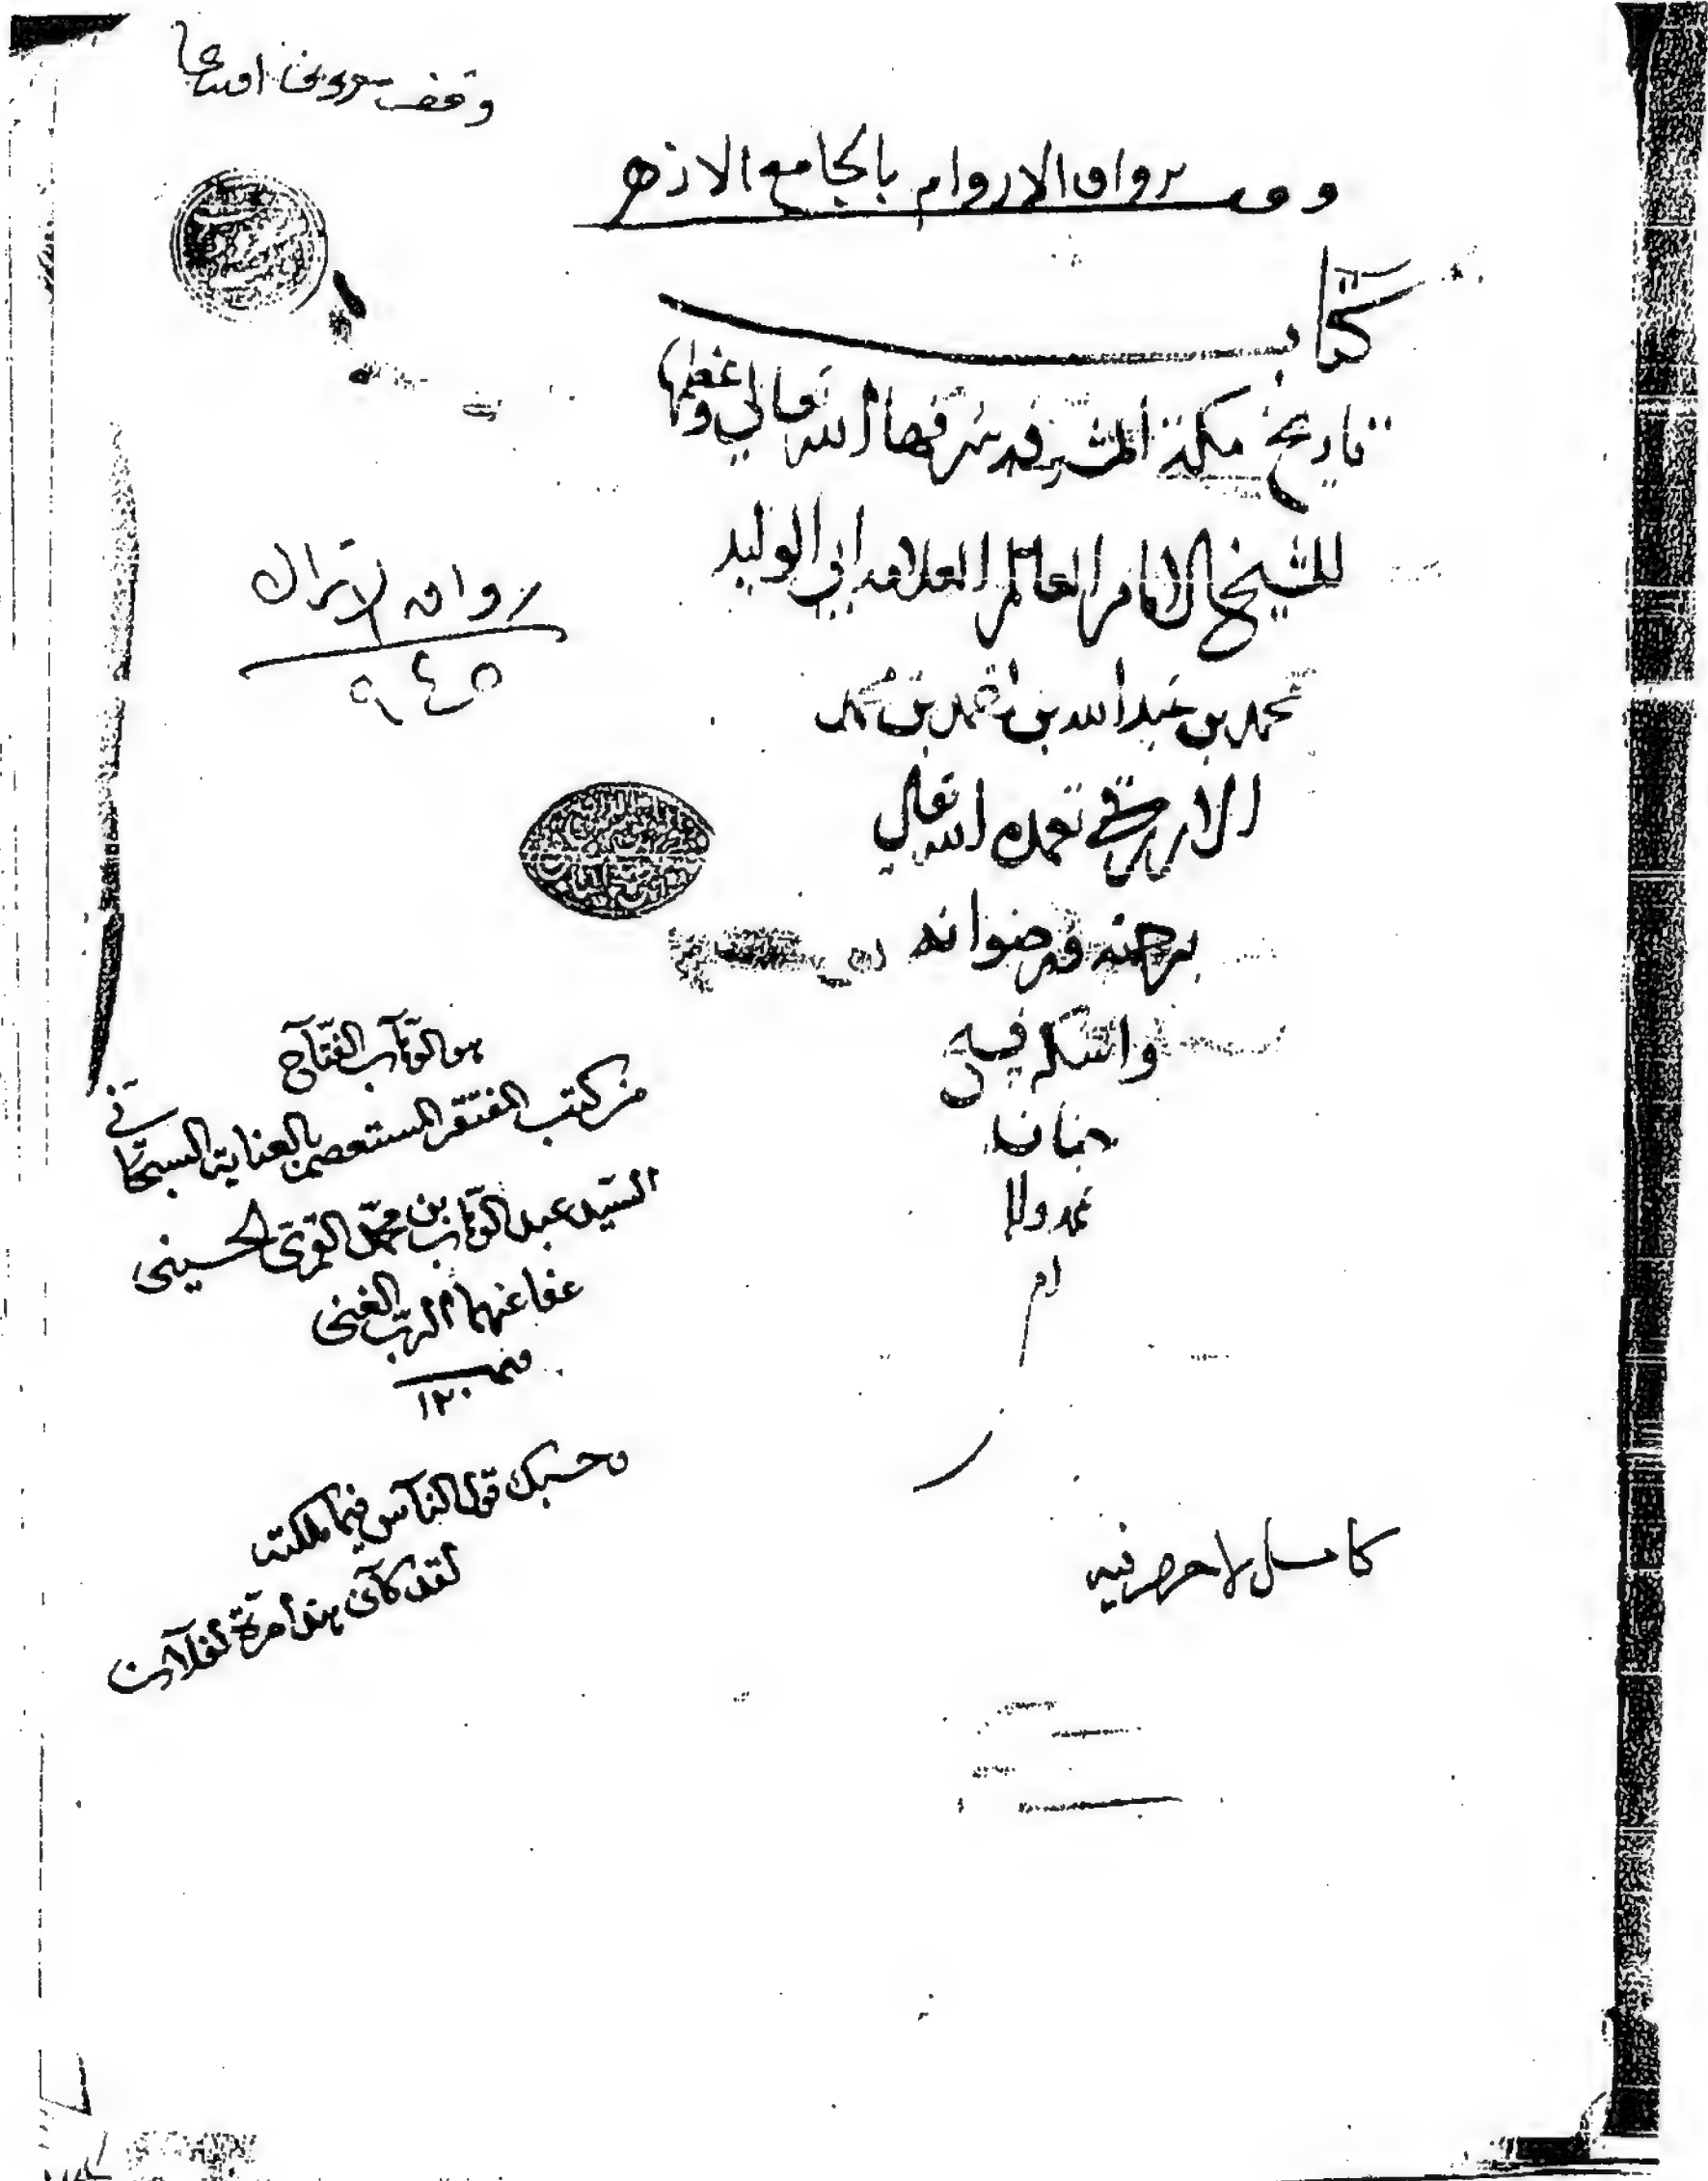 وقف
وقف برواق الاروام بالجامع الازهر
كتاب
تاريخ مكة المشرفة شرفها الله تعالى وعظمها
للشيخ الامام العالم العلامه ابي الوليد
محمد بن عبد الله بن احمد بن محمد
الازرقي تغمده الله تعالى
برحمته ورضوانه
واسكنه فسيح
جنانه
بمحمد واله
ام
رواق الاتراك
٩٤٥
هو الوهاب الفتاح
من كتب الفقير المستعصم بالعناية السبحاني
السيد عبد الوهاب بن محمد القرمي الحسيني
عفا عنهما الرب الغني
سنه ١٢٠
وحسبك قول الناس فيما ملكته
لقد كان هذا مرة لفلان
كامل لا خرم فيه